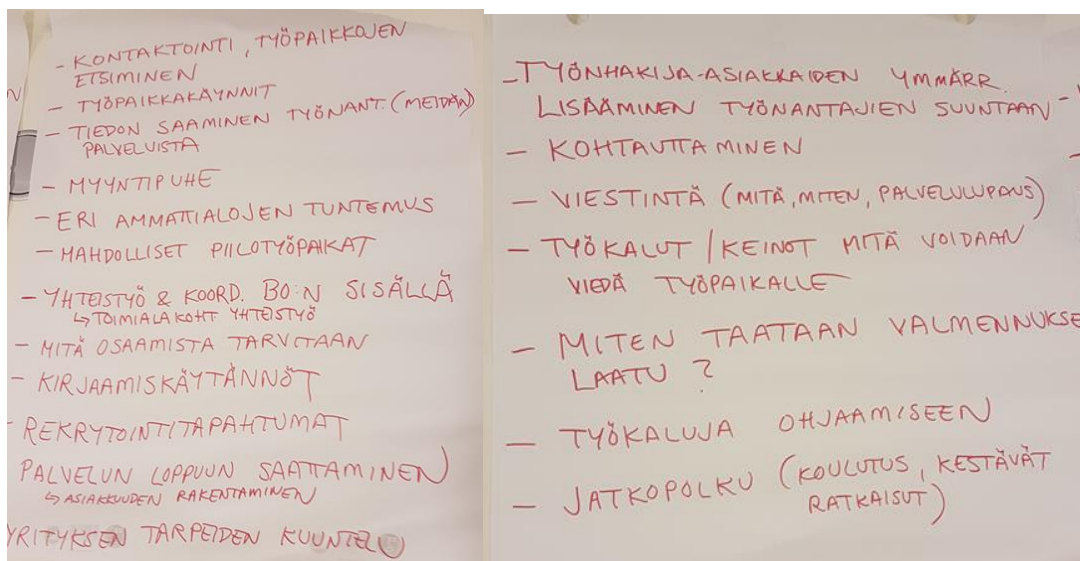 - KONTAKTOINTI, TYÖPAIKKOJEN
ETSIMINEN
- TYÖPAIKKAKÄYNNIT
- TIEDON SAAMINEN TYÖNANT. (MEIDÄN)
PALVELUISTA
- MYYNTIPUHE
- ERI AMMATTIALOJEN TUNTEMUS
- MAHDOLLISET PIILOTYÖPAIKAT
- YHTEISTYÖ & KOORD. BO:N SISÄLLÄ
↳ TOIMIALAKOHT YHTEISTYÖ
- MITÄ OSAAMISTA TARVITAAN
- KIRJAAMISKÄYTÄNNÖT
- REKRYTOINTITAPAHTUMAT
PALVELUN LOPPUUN SAATTAMINEN
↳ ASIAKKUUDEN RAKENTAMINEN
YRITYKSEN TARPEIDEN KUUNTELU
- TYÖNHAKIJA-ASIAKKAIDEN YMMÄRR.
LISÄÄMINEN TYÖNANTAJIEN SUUNTAAN
- KOHTAUTTAMINEN
- VIESTINTÄ (MITÄ, MITEN, PALVELULUPAUS)
- TYÖKALUT / KEINOT MITÄ VOIDAAN
VIEDÄ TYÖPAIKALLE
- MITEN TAATAAN VALMENNUKSE
LAATU ?
- TYÖKALUJA OHJAAMISEEN
- JATKOPOLKU (KOULUTUS, KESTÄVÄT
RATKAISUT)